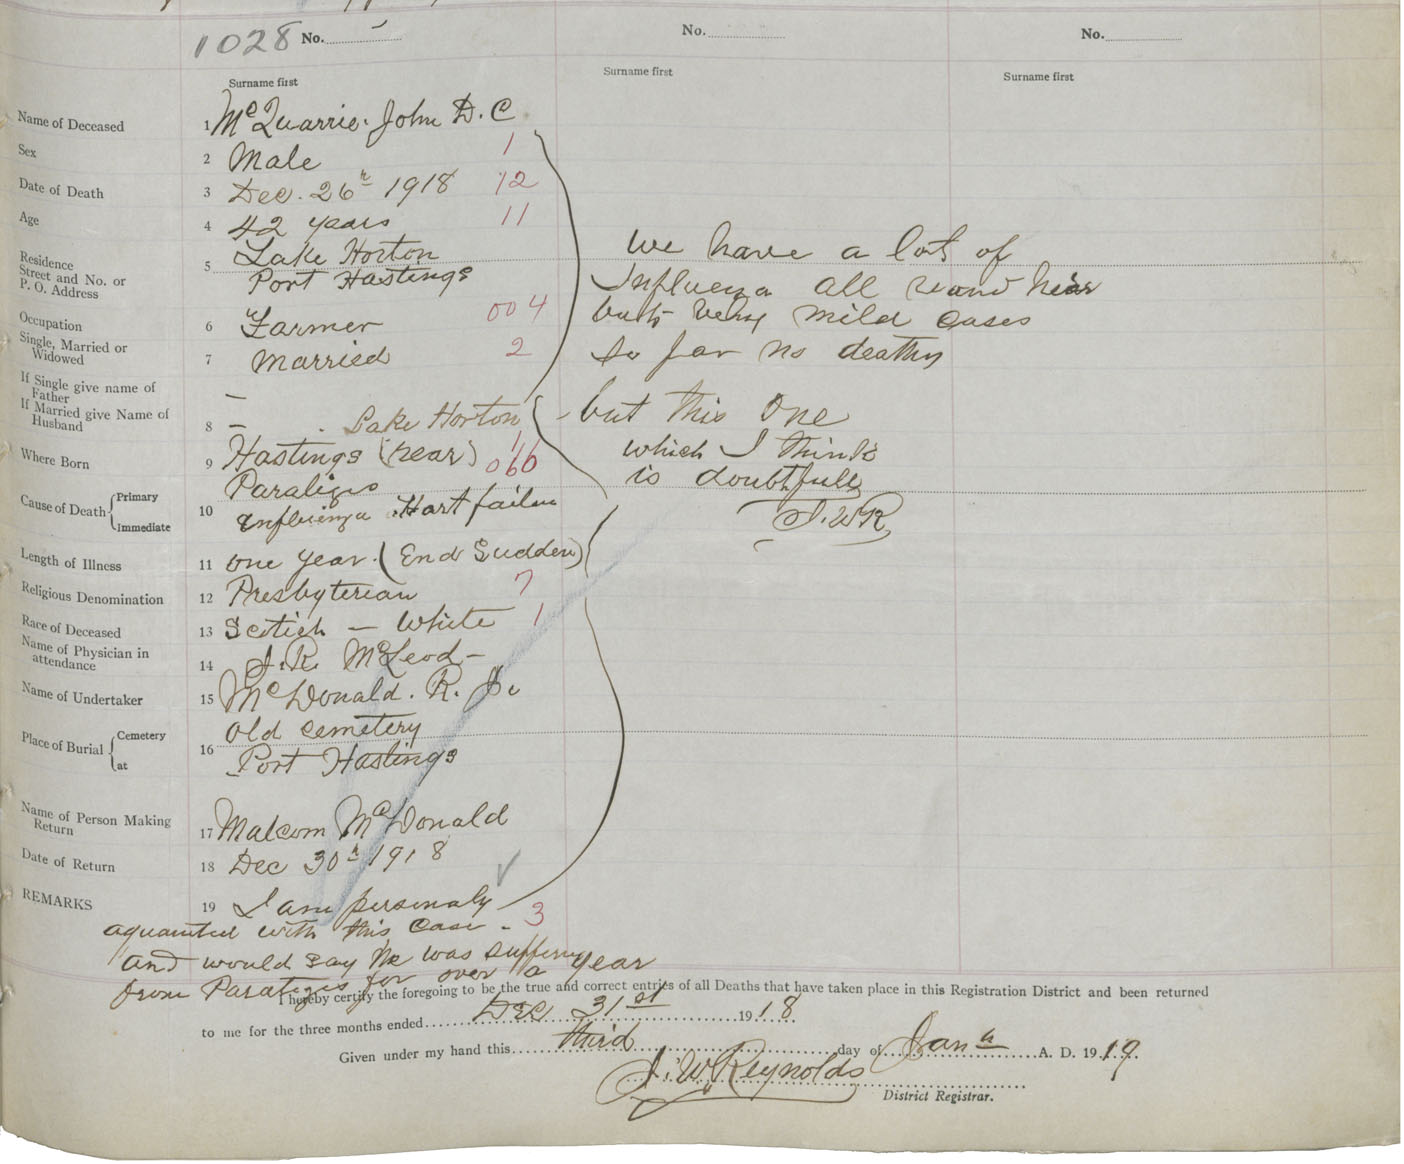 1028 No.
No.
No.
Surname first
Surname first
Surname first
Name of Deceased 1 McQuarrie. John D. C
Sex 2 Male 1
Date of Death 3 Dec. 26th 1918 12
Age 4 42 years 11
Residence Street and No. or P. O. Address 5 Lake Horton
Port Hastings
Occupation 6 Farmer 004
Single, Married or Widowed 7 Married 2
If Single give name of Father –
If Married give Name of Husband 8 – . Lake Horton
Where Born 9 Hastings (near) 1 066
Cause of Death { Primary Paralizis
Immediate 10 Influenza Hart failur
Length of Illness 11 one year. (End Sudden)
Religious Denomination 12 Presbyterian 7
Race of Deceased 13 Scotich – White 1
Name of Physician in attendance 14 J. R. McLeod –
Name of Undertaker 15 McDonald. R. J.
Place of Burial { Cemetery 16 Old cemetery
at Port Hastings
Name of Person Making Return 17 Malcom McDonald
Date of Return 18 Dec 30th 1918
REMARKS 19 I am personaly
aquainted with this case - 3
and would say he was suffering
from Paralizis for over a year
we have a lot of
Influenza all round hear
but very mild cases
so far no deaths
- but this one
which I think
is doubtfull
J. W R
I hereby certify the foregoing to be the true and correct entries of all Deaths that have taken place in this Registration District and been returned
to me for the three months ended Dec 31st 1918.
Given under my hand this third day of Jany A. D. 1919.
J. W. Reynolds
District Registrar.